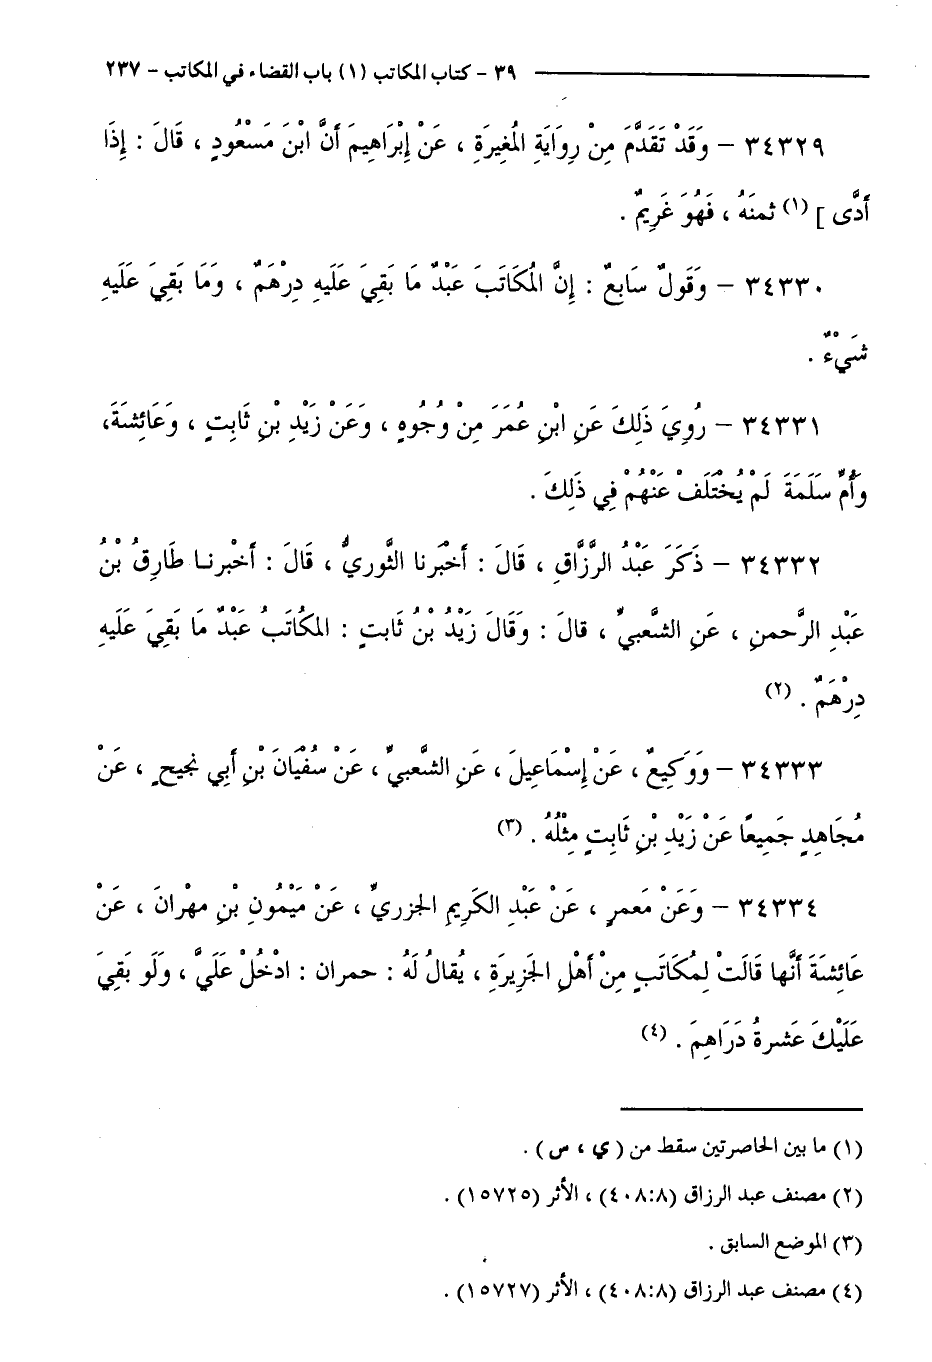 ٣٩ - كتاب المكاتب (١) باب القضاء في المكاتب - ٢٣٧
٣٤٣٢٩ - وَقَدْ تَقَدَّمَ مِنْ رِوَايَةِ المُغِيرَةِ ، عَنْ إِبْرَاهِيمَ أَنَّ ابْنَ مَسْعُودٍ ، قَالَ : إِذَا
أَدَّى ] (١) ثمنَهُ ، فَهُوَ غَرِيمٌ .
٣٤٣٣٠ - وَقَولٌ سَابِعٌ : إِنَّ المُكَاتَبَ عَبْدٌ مَا بَقِيَ عَلَيهِ دِرْهَمٌ ، وَمَا بَقِيَ عَلَيهِ
شَيْءٌ .
٣٤٣٣١ - رُوِيَ ذَلِكَ عَنِ ابْنِ عُمَرَ مِنْ وُجُوهٍ ، وَعَنْ زَيْدِ بْنِ ثَابِتٍ ، وَعَائِشَةَ،
وَأُمِّ سَلَمَةَ لَمْ يُخْتَلَفْ عَنْهُمْ فِي ذَلِكَ .
٣٤٣٣٢ - ذَكَرَ عَبْدُ الرَّزَّاقِ ، قَالَ : أَخْبَرنا الثَّوريُّ ، قَالَ : أَخْبرنا طَارِقُ بْنُ
عَبْدِ الرَّحمنِ ، عَنِ الشَّعبيِّ ، قالَ : وَقَالَ زَيْدُ بْنُ ثَابتٍ : المكُاتَبُ عَبدٌ مَا بَقِيَ عَلَيهِ
دِرْهَمٌ . (٢)
٣٤٣٣٣ - وَوَكِيعٌ ، عَنْ إِسْمَاعِيلَ ، عَنِ الشَّعبيِّ ، عَنْ سُفْيَانَ بْنِ أَبِي نجيحٍ ، عَنْ
مُجَاهِدٍ جَمِيعًا عَنْ زَيْدِ بْنِ ثَابِتٍ مِثْلُهُ . (٣)
٣٤٣٣٤ - وَعَنْ مَعمرٍ ، عَنْ عَبْدِ الكَرِيمِ الجزريِّ ، عَنْ مَيْمُونِ بْنِ مهْرانَ ، عَنْ
عَائِشَةَ أَنَّها قَالَتْ لِمُكَاتَبٍ مِنْ أَهْلِ الجَزِيرَةِ ، يُقالُ لَهُ : حمران : ادْخُلْ عَلَيَّ ، وَلَو بَقِيَ
عَلَيْكَ عَشرةُ دَرَاهِمَ . (٤)
(١) ما بين الحاصرتين سقط من ( ي ، س ) .
(٢) مصنف عبد الرزاق (٤٠٨:٨) ، الأثر (١٥٧٢٥) .
(٣) الموضع السابق .
(٤) مصنف عبد الرزاق (٤٠٨:٨) ، الأثر (١٥٧٢٧) .